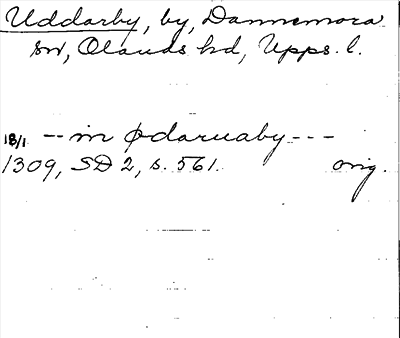 Uddarby, by, Dannemora
sn, Olands hd, Upps. l.
18/1 -- in ødarnaby ---
1309, SD 2, s. 561. orig.